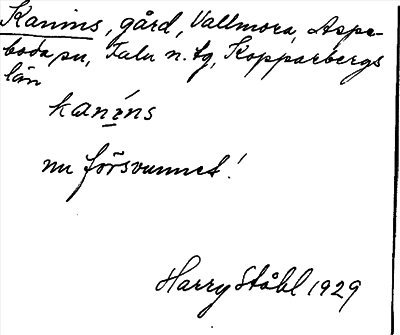 Kanins, gård, Vallmora, Aspe-
boda sn, Falu n. tg, Kopparbergs
län
kanins
nu försvunnet!
Harry Ståhl 1929